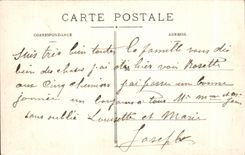 CARTE POSTALE
CORRESPONDANCE
ADRESSE
Suis très bien toute la famille vous dit
bien des choses j'ai été hier voir Rosette
aux Cinq chemins j'ai passé une bonne
journée un bonjour a tous Mr
sans oublié Louisette et Marie
Joseph